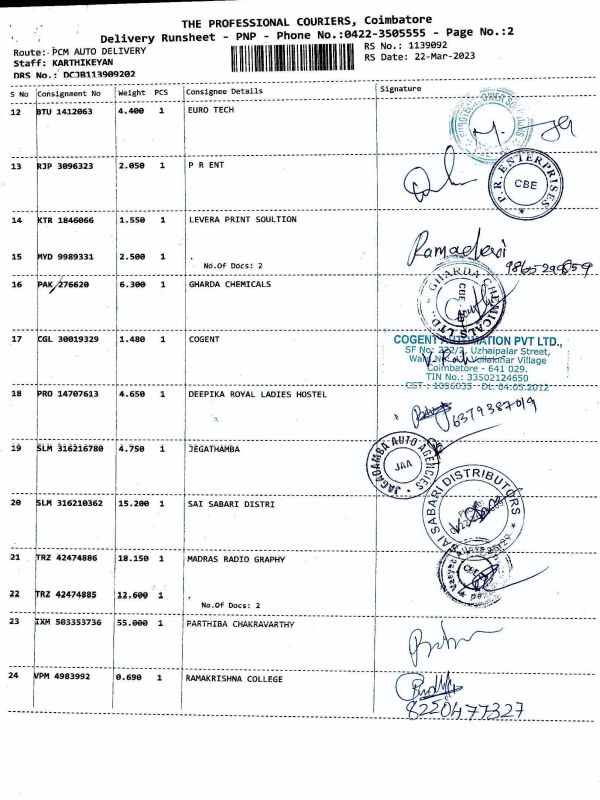 THE PROFESSIONAL COURIERS, Coimbatore
Delivery Runsheet - PNP - Phone No.:0422-3505555 - Page No.:2
Route: PCM AUTO DELIVERY
RS No.: 1139092
Staff: KARTHIKEYAN
RS Date: 22-Mar-2023
DRS No.: DCJB113909202
S No Consignment No Weight PCS Consignee Details Signature
12 BTU 1412063 4.400 1 EURO TECH
13 RJP 3096323 2.050 1 P R ENT
P.R. ENTERPRISES CBE
14 KTR 1846066 1.550 1 LEVERA PRINT SOULTION
Ramadevi
15 MYD 9989331 2.500 1 .
No.Of Docs: 2
16 PAK 276620 6.300 1 GHARDA CHEMICALS
GHARDA CHEMICALS LTD. CBE
17 CGL 30019329 1.480 1 COGENT
COGENT AUTOMATION PVT LTD.,
SF No: 222/2, Uzhaipalar Street,
Village
Coimbatore - 641 029.
TIN No.: 33502124650
CST : 1056035 DL 04.05.2012
18 PRO 14707613 4.650 1 DEEPIKA ROYAL LADIES HOSTEL
6379387019
19 SLM 316216780 4.750 1 JEGATHAMBA
JAGADAMBA AUTO AGENCIES JAA
20 SLM 316210362 15.200 1 SAI SABARI DISTRI
SAI SABARI DISTRIBUTORS
21 TRZ 42474886 18.150 1 MADRAS RADIO GRAPHY
22 TRZ 42474885 12.600 1 .
No.Of Docs: 2
23 IXM 503353736 55.000 1 PARTHIBA CHAKRAVARTHY
24 VPM 4983992 0.690 1 RAMAKRISHNA COLLEGE
8220477327